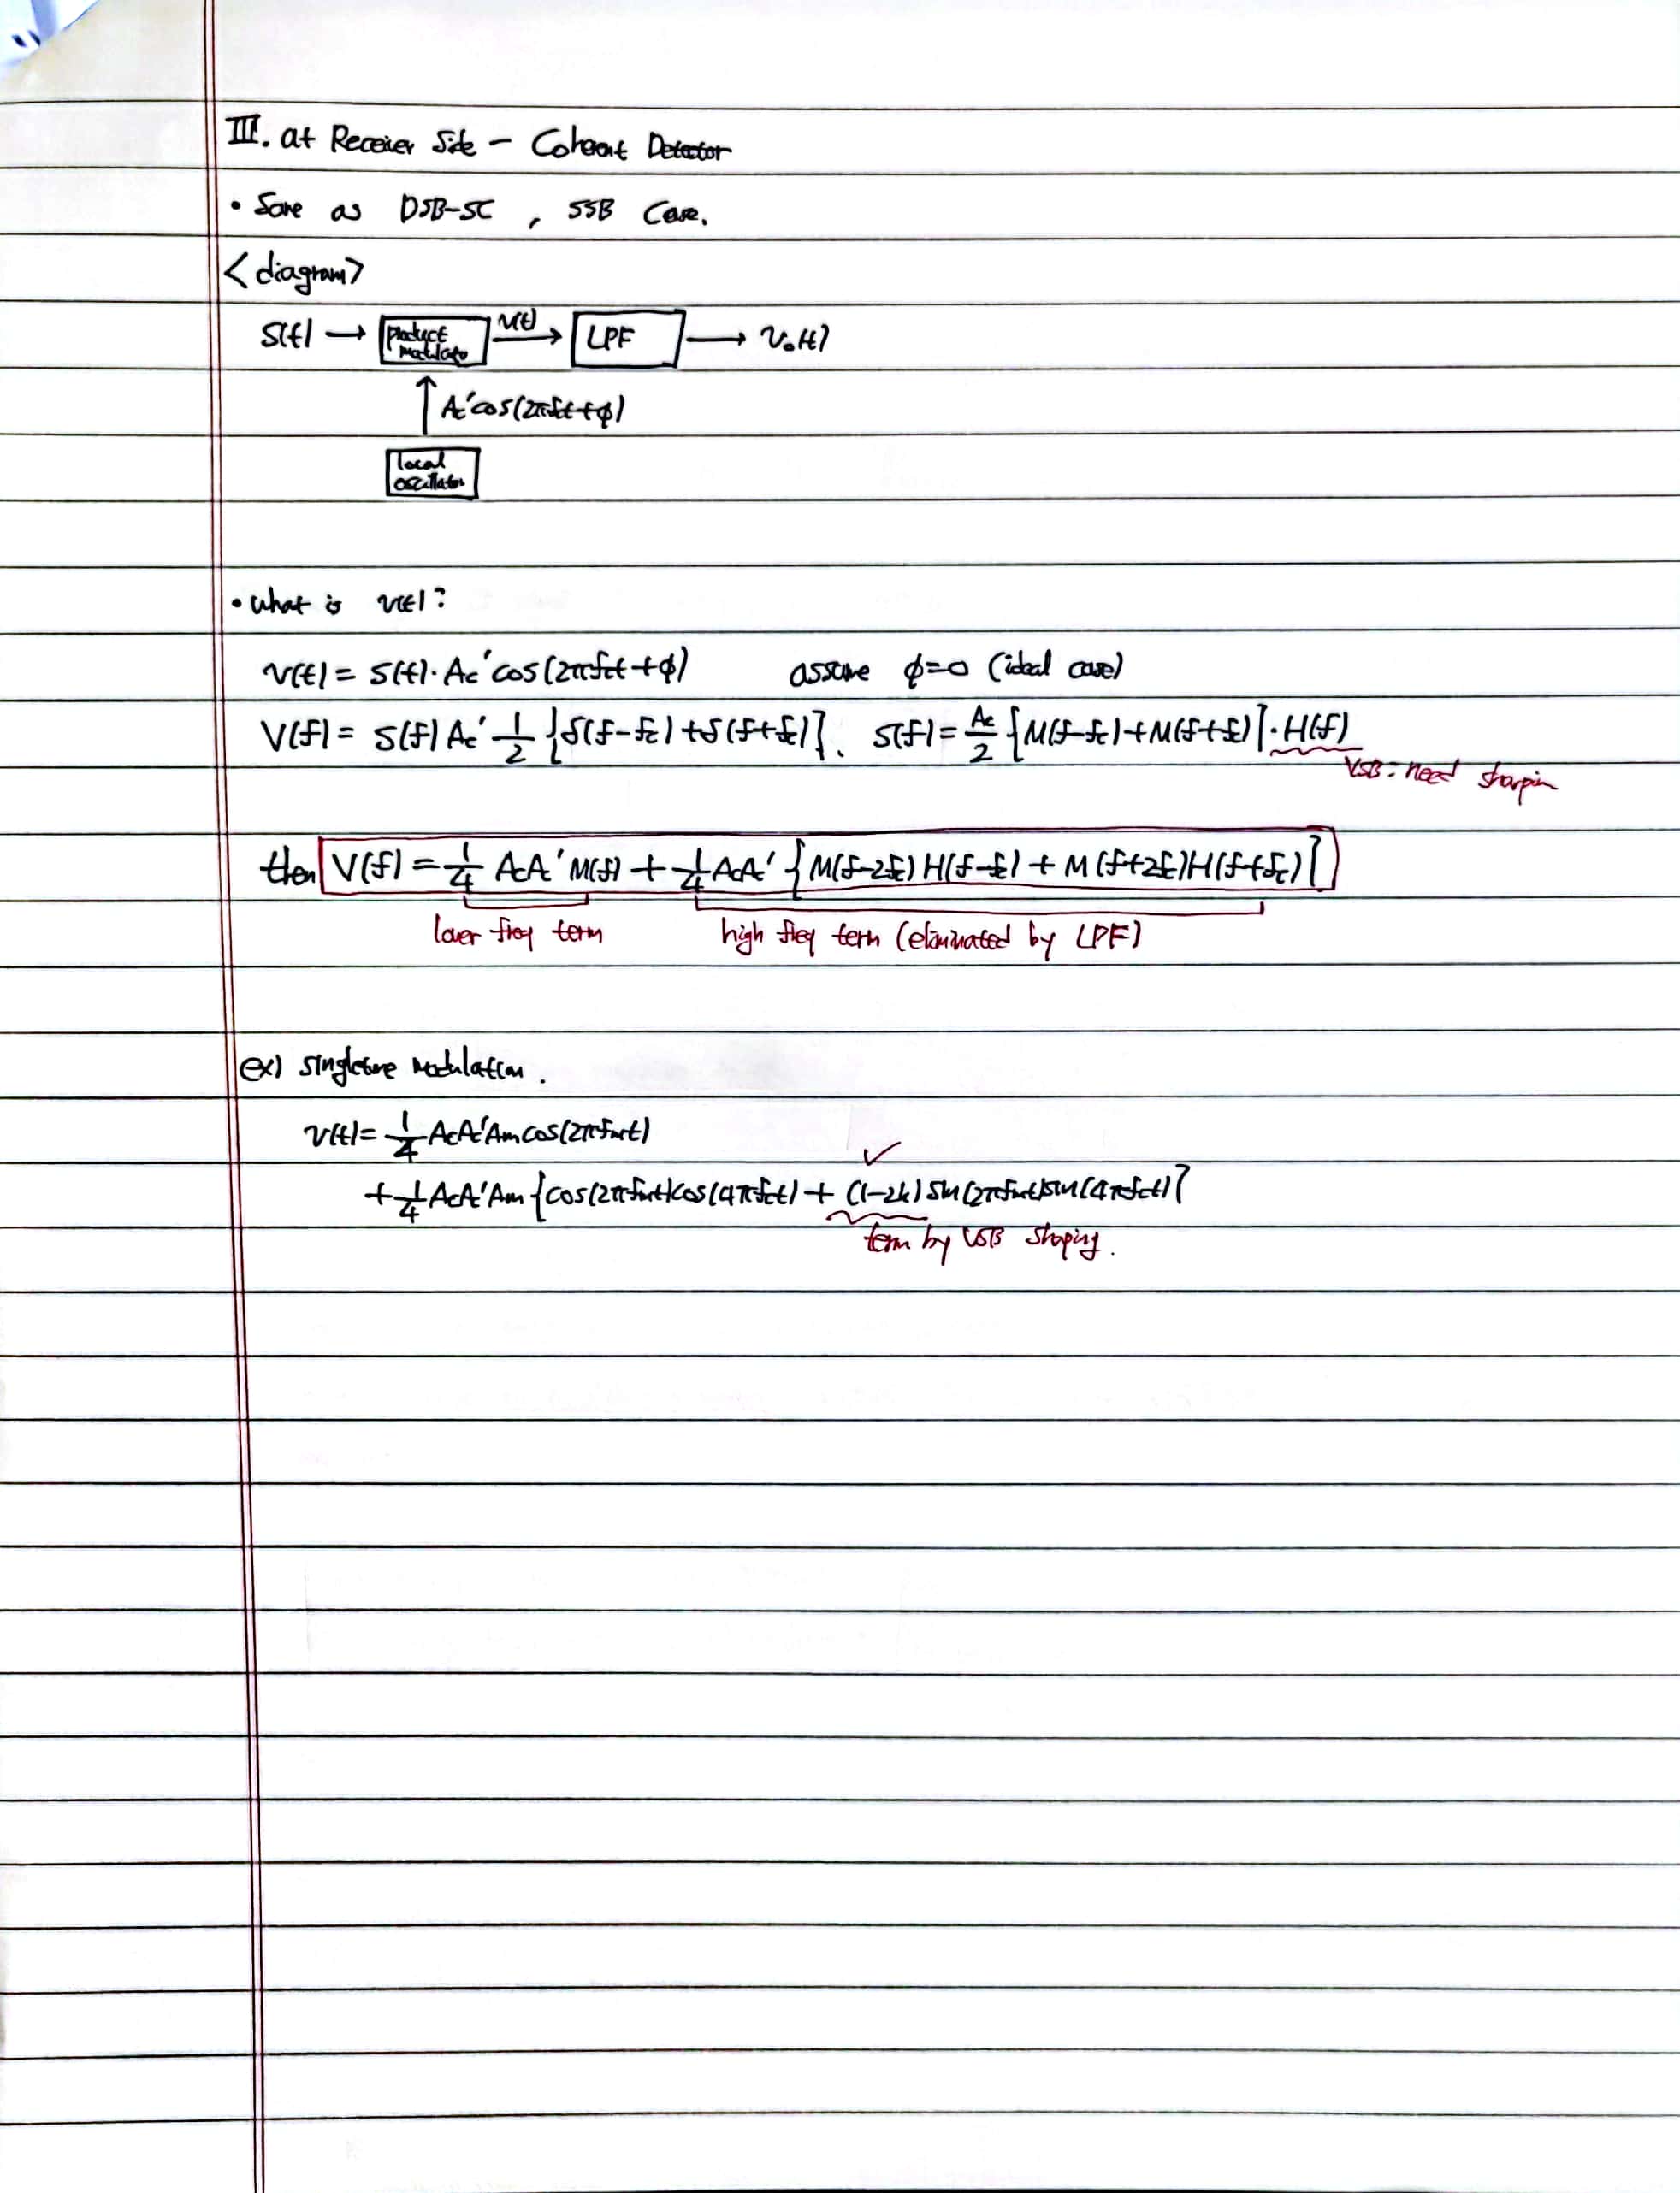 III. at Receiver Side - Coherent Detector
• Same as DSB-SC , SSB Case.
<diagram>
S(t) → product modulator v(t) → LPF → v₀(t)
↑ Ac'cos(2πfct+φ)
local oscillator
• what is v(t)?
v(t) = s(t)·Ac'cos(2πfct+φ) assume φ=0 (ideal case)
V(f) = S(f) Ac' 1/2 {δ(f-fc)+δ(f+fc)}. S(f) = Ac/2 {M(f-fc)+M(f+fc)}·H(f)
VSB: need sharpin
then V(f) = 1/4 AcAc' M(f) + 1/4 AcAc' {M(f-2fc)H(f-fc) + M(f+2fc)H(f+fc)}
lower freq term high freq term (eliminated by LPF)
ex) singletone modulation.
v(t) = 1/4 AcAc'Amcos(2πfmt)
+ 1/4 AcAc'Am {cos(2πfmt)cos(4πfct) + (1-2k)sin(2πfmt)sin(4πfct)}
term by VSB shaping.